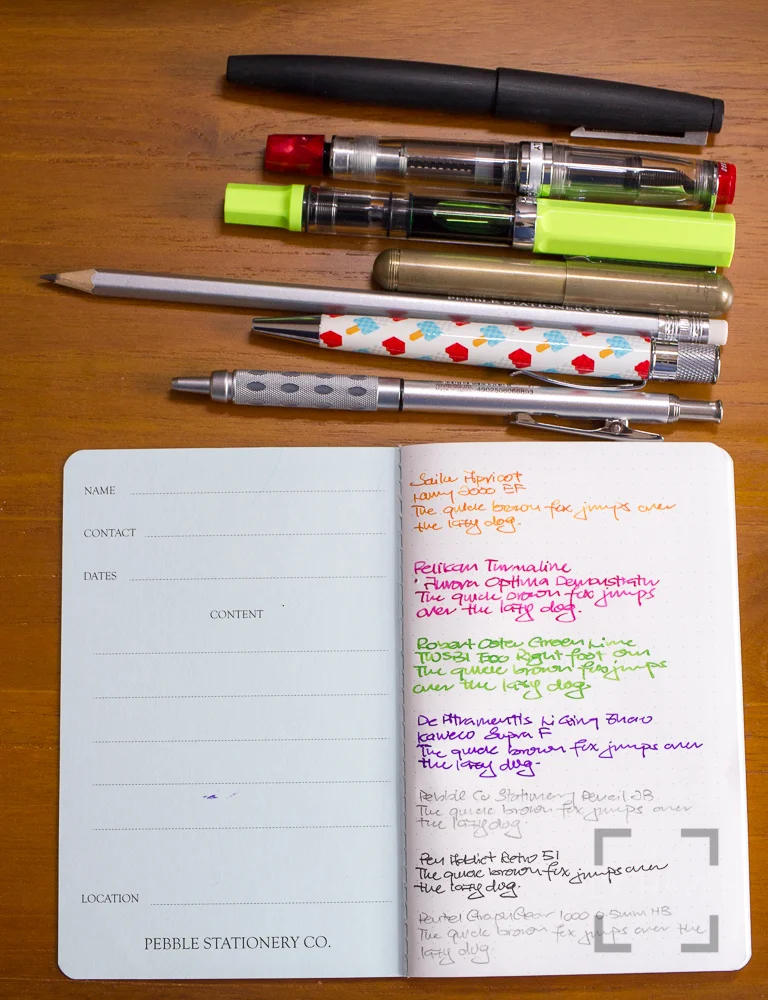 PEBBLE STATIONERY CO.
4902506068903
NAME
CONTACT
DATES
CONTENT
LOCATION
PEBBLE STATIONERY CO.
Sailor Apricot
Lamy 2000 EF
The quick brown fox jumps over
the lazy dog.
Pelikan Turmaline
Aurora Optima Demonstrator
The quick brown fox jumps
over the lazy dog.
Robert Oster Green Lime
TWSBI Eco Right foot
The quick brown fox jumps
over the lazy dog.
De Atramentis Li Qing Zhao
Kaweco Supra F
The quick brown fox jumps over
the lazy dog.
Pebble Co Stationery Pencil 2B
The quick brown fox jumps over
the lazy dog.
Pen Addict Retro 51
The quick brown fox jumps over
the lazy dog.
Pentel GraphGear 1000 0.5mm HB
The quick brown fox jumps over the
lazy dog.